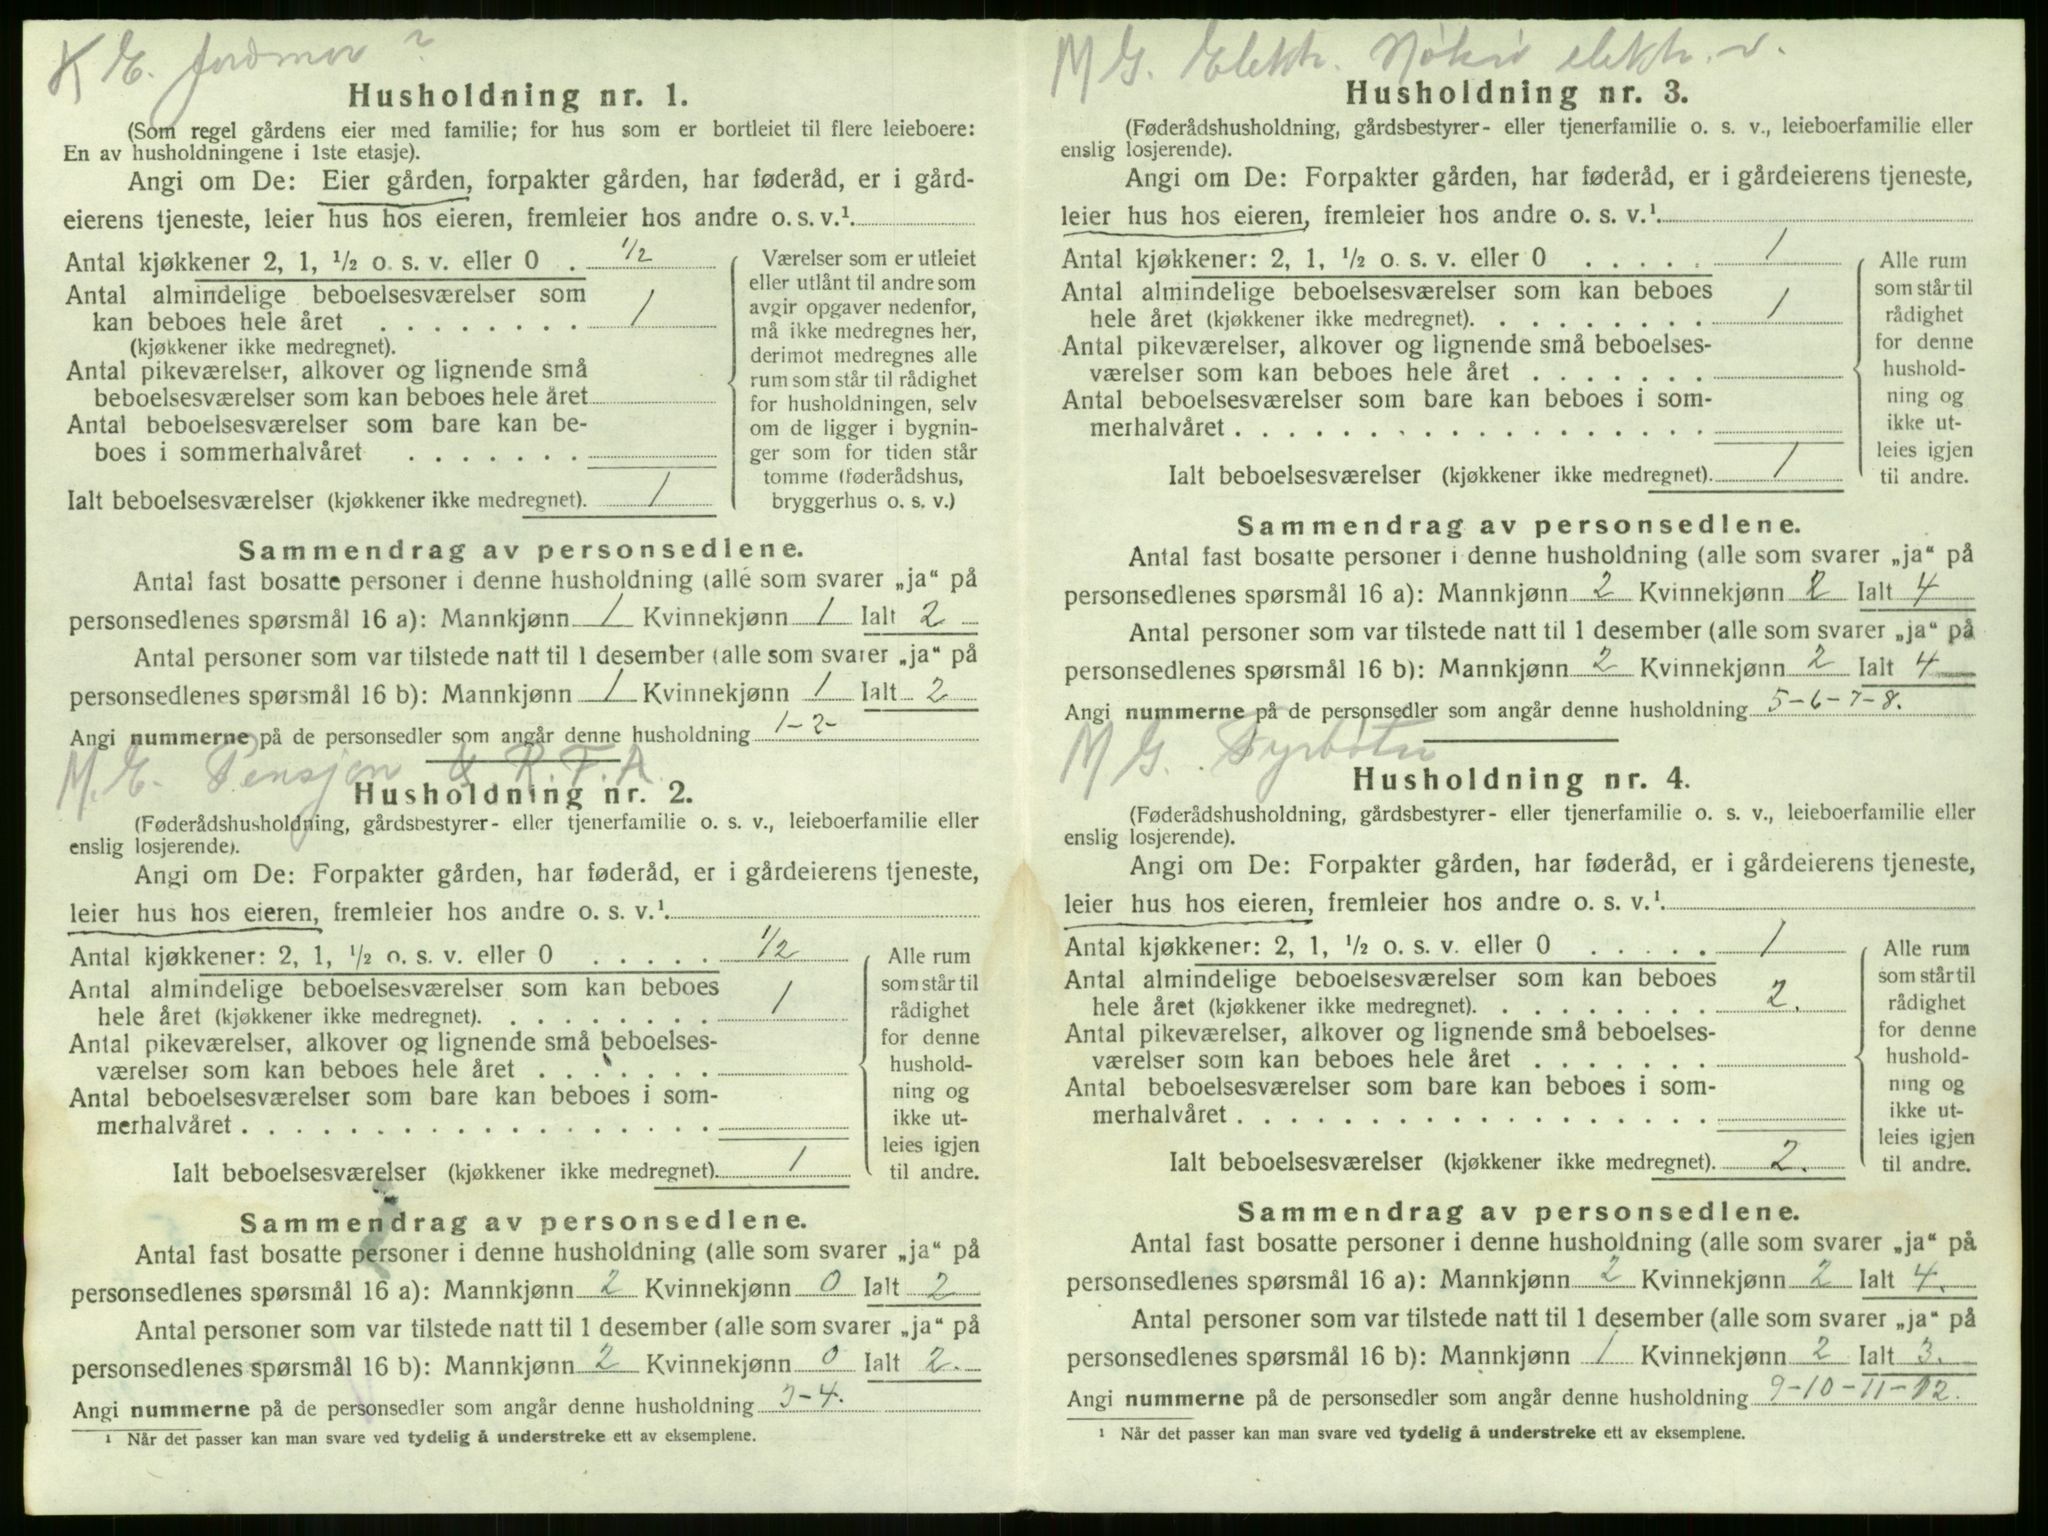 K E. Jordmor ?
Husholdning nr. 1.
(Som regel gårdens eier med familie; for hus som er bortleiet til flere leieboere:
En av husholdningene i 1ste etasje).
Angi om De: Eier gården, forpakter gården, har føderåd, er i gård-
eierens tjeneste, leier hus hos eieren, fremleier hos andre o. s. v.¹
Antal kjøkkener 2, 1, ½ o. s. v. eller 0 . 1/2
Antal almindelige beboelsesværelser som
kan beboes hele året . . . . . . . . 1
(kjøkkener ikke medregnet).
Antal pikeværelser, alkover og lignende små
beboelsesværelser som kan beboes hele året
Antal beboelsesværelser som bare kan be-
boes i sommerhalvåret . . . . . . .
Ialt beboelsesværelser (kjøkkener ikke medregnet). 1
Værelser som er utleiet
eller utlånt til andre som
avgir opgaver nedenfor,
må ikke medregnes her,
derimot medregnes alle
rum som står til rådighet
for husholdningen, selv
om de ligger i bygnin-
ger som for tiden står
tomme (føderådshus,
bryggerhus o. s. v.)
Sammendrag av personsedlene.
Antal fast bosatte personer i denne husholdning (alle som svarer „ja“ på
personsedlenes spørsmål 16 a): Mannkjønn 1 Kvinnekjønn 1 Ialt 2
Antal personer som var tilstede natt til 1 desember (alle som svarer „ja“ på
personsedlenes spørsmål 16 b): Mannkjønn 1 Kvinnekjønn 1 Ialt 2
Angi nummerne på de personsedler som angår denne husholdning 1-2-
M. E. Pensjon & R. F. A.
Husholdning nr. 2.
(Føderådshusholdning, gårdsbestyrer- eller tjenerfamilie o. s. v., leieboerfamilie eller
enslig losjerende).
Angi om De: Forpakter gården, har føderåd, er i gårdeierens tjeneste,
leier hus hos eieren, fremleier hos andre o. s. v.¹
Antal kjøkkener: 2, 1, ½ o. s. v. eller 0 . . . . . 1/2
Antal almindelige beboelsesværelser som kan beboes
hele året (kjøkkener ikke medregnet). . . . . . . . . 1
Antal pikeværelser, alkover og lignende små beboelses-
værelser som kan beboes hele året . . . . . . .
Antal beboelsesværelser som bare kan beboes i som-
merhalvåret . . . . . . . . . . . . . . . . . .
Ialt beboelsesværelser (kjøkkener ikke medregnet). 1
Alle rum
som står til
rådighet
for denne
hushold-
ning og
ikke ut-
leies igjen
til andre.
Sammendrag av personsedlene.
Antal fast bosatte personer i denne husholdning (alle som svarer „ja“ på
personsedlenes spørsmål 16 a): Mannkjønn 2 Kvinnekjønn 0 Ialt 2
Antal personer som var tilstede natt til 1 desember (alle som svarer „ja“ på
personsedlenes spørsmål 16 b): Mannkjønn 2 Kvinnekjønn 0 Ialt 2.
Angi nummerne på de personsedler som angår denne husholdning 3-4.
¹ Når det passer kan man svare ved tydelig å understreke ett av eksemplene.
M G. Elektr. elektr. v.
Husholdning nr. 3.
(Føderådshusholdning, gårdsbestyrer- eller tjenerfamilie o. s. v., leieboerfamilie eller
enslig losjerende).
Angi om De: Forpakter gården, har føderåd, er i gårdeierens tjeneste,
leier hus hos eieren, fremleier hos andre o. s. v.¹
Antal kjøkkener: 2, 1, ½ o. s. v. eller 0 . . . . . 1
Antal almindelige beboelsesværelser som kan beboes
hele året (kjøkkener ikke medregnet). . . . . . . . . 1
Antal pikeværelser, alkover og lignende små beboelses-
værelser som kan beboes hele året . . . . . . .
Antal beboelsesværelser som bare kan beboes i som-
merhalvåret . . . . . . . . . . . . . . . . . .
Ialt beboelsesværelser (kjøkkener ikke medregnet). 1
Alle rum
som står til
rådighet
for denne
hushold-
ning og
ikke ut-
leies igjen
til andre.
Sammendrag av personsedlene.
Antal fast bosatte personer i denne husholdning (alle som svarer „ja“ på
personsedlenes spørsmål 16 a): Mannkjønn 2 Kvinnekjønn 2 Ialt 4
Antal personer som var tilstede natt til 1 desember (alle som svarer „ja“ på
personsedlenes spørsmål 16 b): Mannkjønn 2 Kvinnekjønn 2 Ialt 4
Angi nummerne på de personsedler som angår denne husholdning 5-6-7-8.
M G. Fyrbøter
Husholdning nr. 4.
(Føderådshusholdning, gårdsbestyrer- eller tjenerfamilie o. s. v., leieboerfamilie eller
enslig losjerende).
Angi om De: Forpakter gården, har føderåd, er i gårdeierens tjeneste,
leier hus hos eieren, fremleier hos andre o. s. v.¹
Antal kjøkkener: 2, 1, ½ o. s. v. eller 0 . . . . . 1
Antal almindelige beboelsesværelser som kan beboes
hele året (kjøkkener ikke medregnet). . . . . . . . . 2.
Antal pikeværelser, alkover og lignende små beboelses-
værelser som kan beboes hele året . . . . . . .
Antal beboelsesværelser som bare kan beboes i som-
merhalvåret . . . . . . . . . . . . . . . . . .
Ialt beboelsesværelser (kjøkkener ikke medregnet). 2.
Alle rum
som står til
rådighet
for denne
hushold-
ning og
ikke ut-
leies igjen
til andre.
Sammendrag av personsedlene.
Antal fast bosatte personer i denne husholdning (alle som svarer „ja“ på
personsedlenes spørsmål 16 a): Mannkjønn 2 Kvinnekjønn 2 Ialt 4.
Antal personer som var tilstede natt til 1 desember (alle som svarer „ja“ på
personsedlenes spørsmål 16 b): Mannkjønn 1 Kvinnekjønn 2 Ialt 3.
Angi nummerne på de personsedler som angår denne husholdning 9-10-11-12.
¹ Når det passer kan man svare ved tydelig å understreke ett av eksemplene.